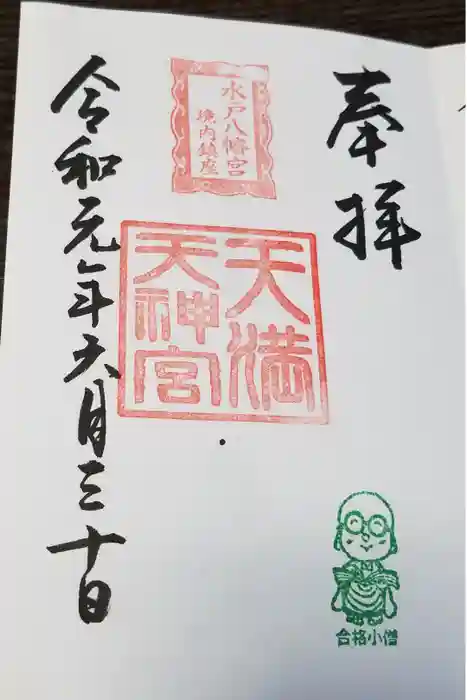 奉拝
水戸八幡宮
境内鎮座
天満
天神宮
令和元年六月三十日
合格小僧